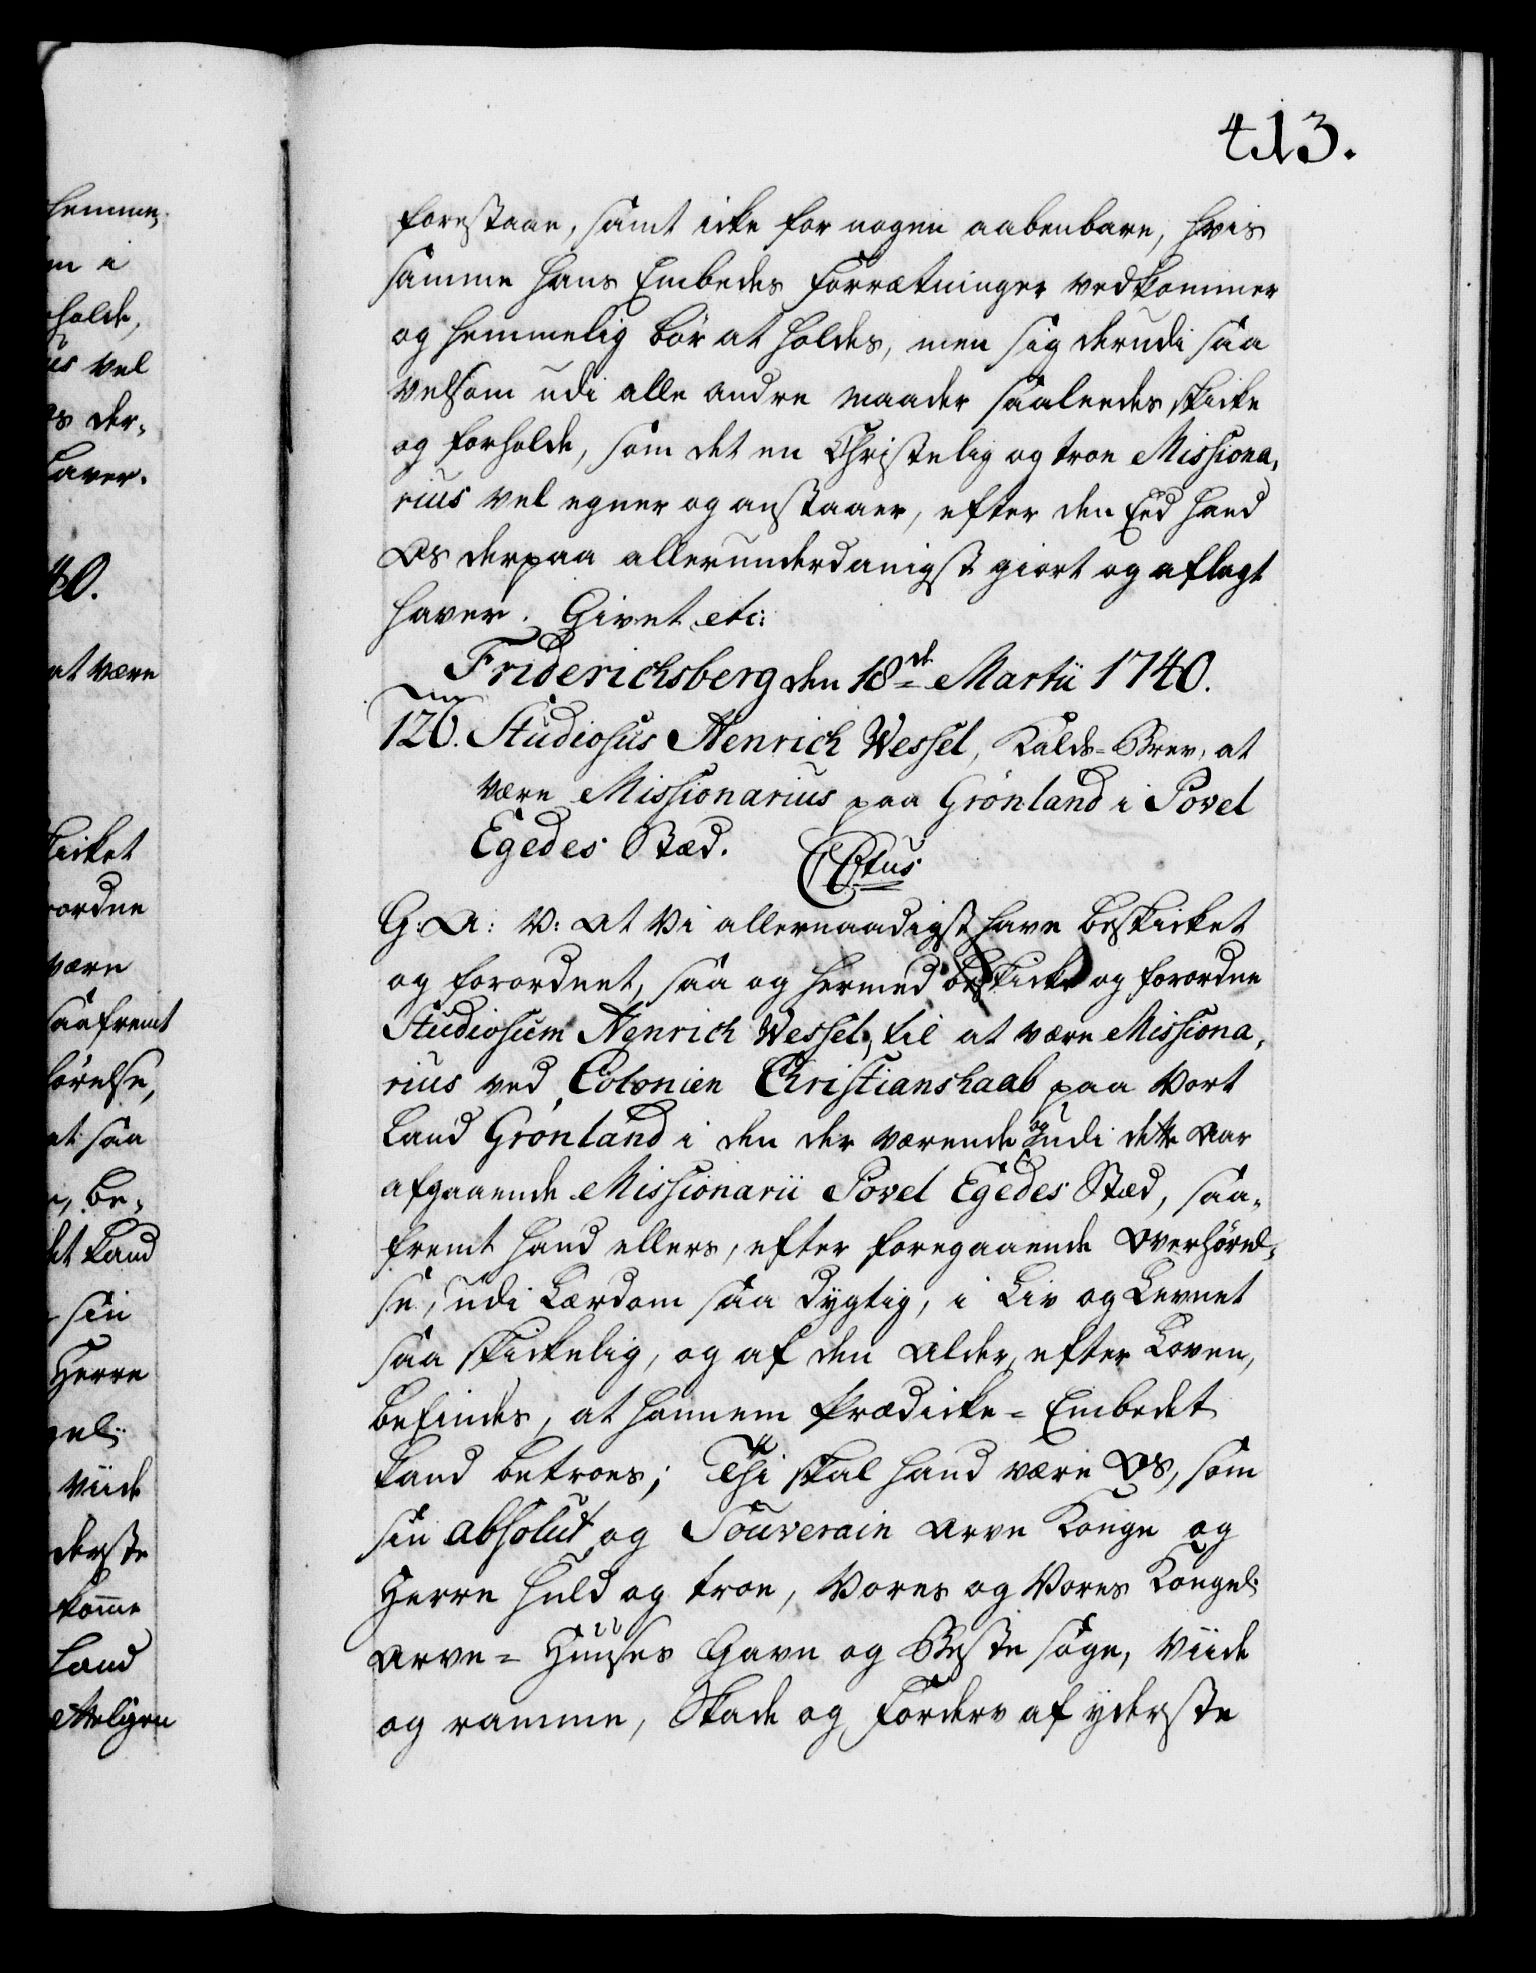 413.
forestaae, samt icke for nogen aabenbare, hvis
samme hans Embedes Forrætninger vedkommer
og hemmelig bør at holdes, men sig derudi saa
velsom udi alle andre maader saaleedes skicke
og forholde, som det en Christelig og troe Missiona,
rius vel egner og anstaaer, efter den Eed hand
Os derpaa allerunderdanigst giort og aflagt
haver. Givet etc:
Friderichsberg den 18de Martii 1740.
126. Studiosus Henrich Wessel, Kalds-Brev, at
være Missionarius paa Grønland i Povel
Egedes Stæd.
C6tus
G: A: V: At Vi allernaadigst have beskicket
og forordnet, saa og hermed beskicke og forordne
Studiosum Henrich Wessel, til at være Missiona,
rius ved Colonien Christianshaab paa Vort
Land Grønland i den der værende og udi dette Aar
afgaaende Missionarii Povel Egedes Stæd, saa,
fremt hand ellers, efter foregaaende Overhørel,
se, udi Lærdom saa dygtig, i Liv og Levnet
saa skickelig, og af den Alder, efter Loven,
befindes, at hannem Prædicke-Embedet
kand betroes; Thi skal hand være Os, som
sin absolut og Souverain Arve Konge og
Herre huld og troe, Vores og Vores Kongel.
Arve-Huuses Gavn og Beste søge, Viide
og ramme, Skade og Forderv af yderste
hemme,
en i
holde,
us vel
s der,
haver.
40.
at være
skicket
ordne
være
saafremt
hørelse,
at saa
be,
et kand
sin
Herre
gel.
viide
derste
komme
Land
ettelligen